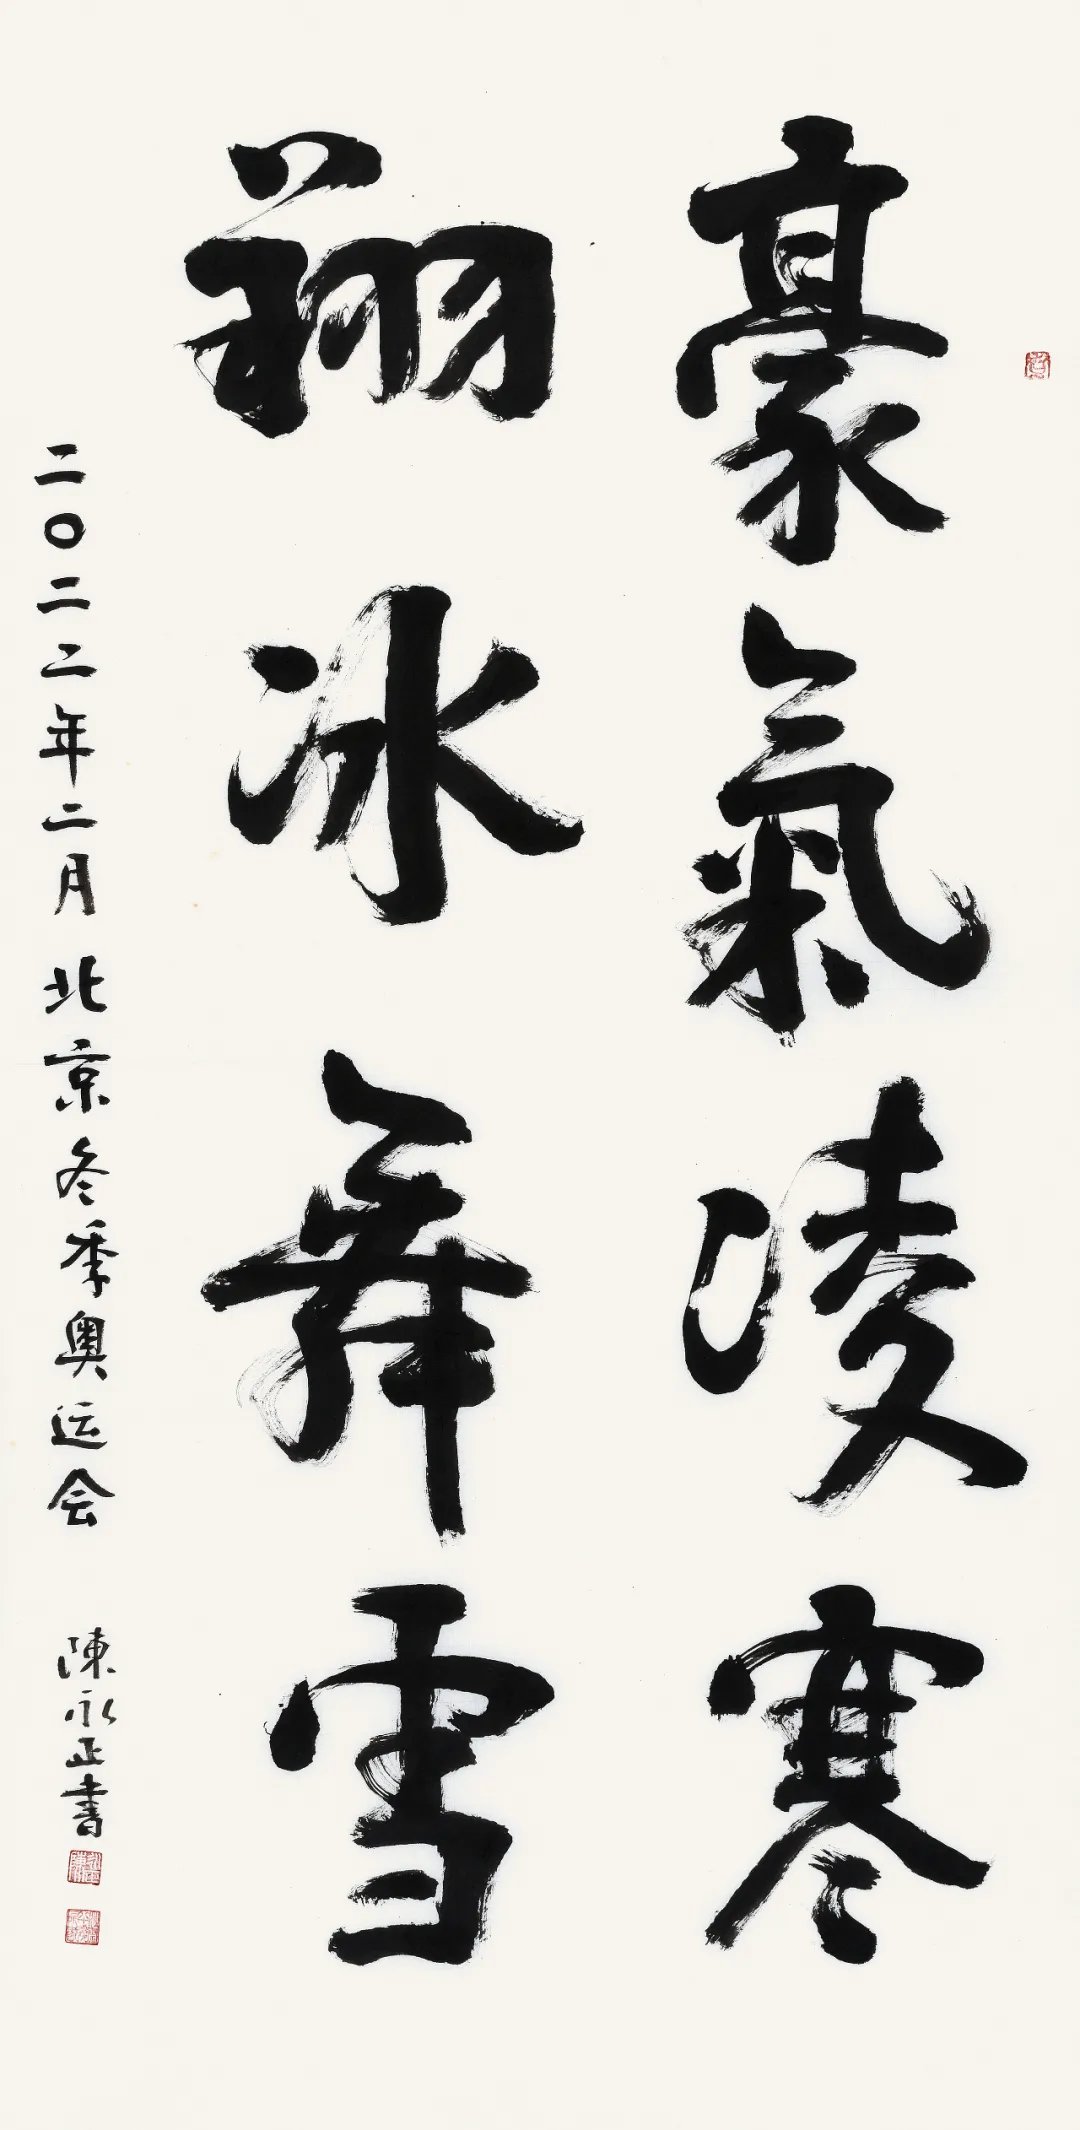 豪氣凌寒
翔冰舞雪
二〇二二年二月北京冬季奥运会 陳永正書